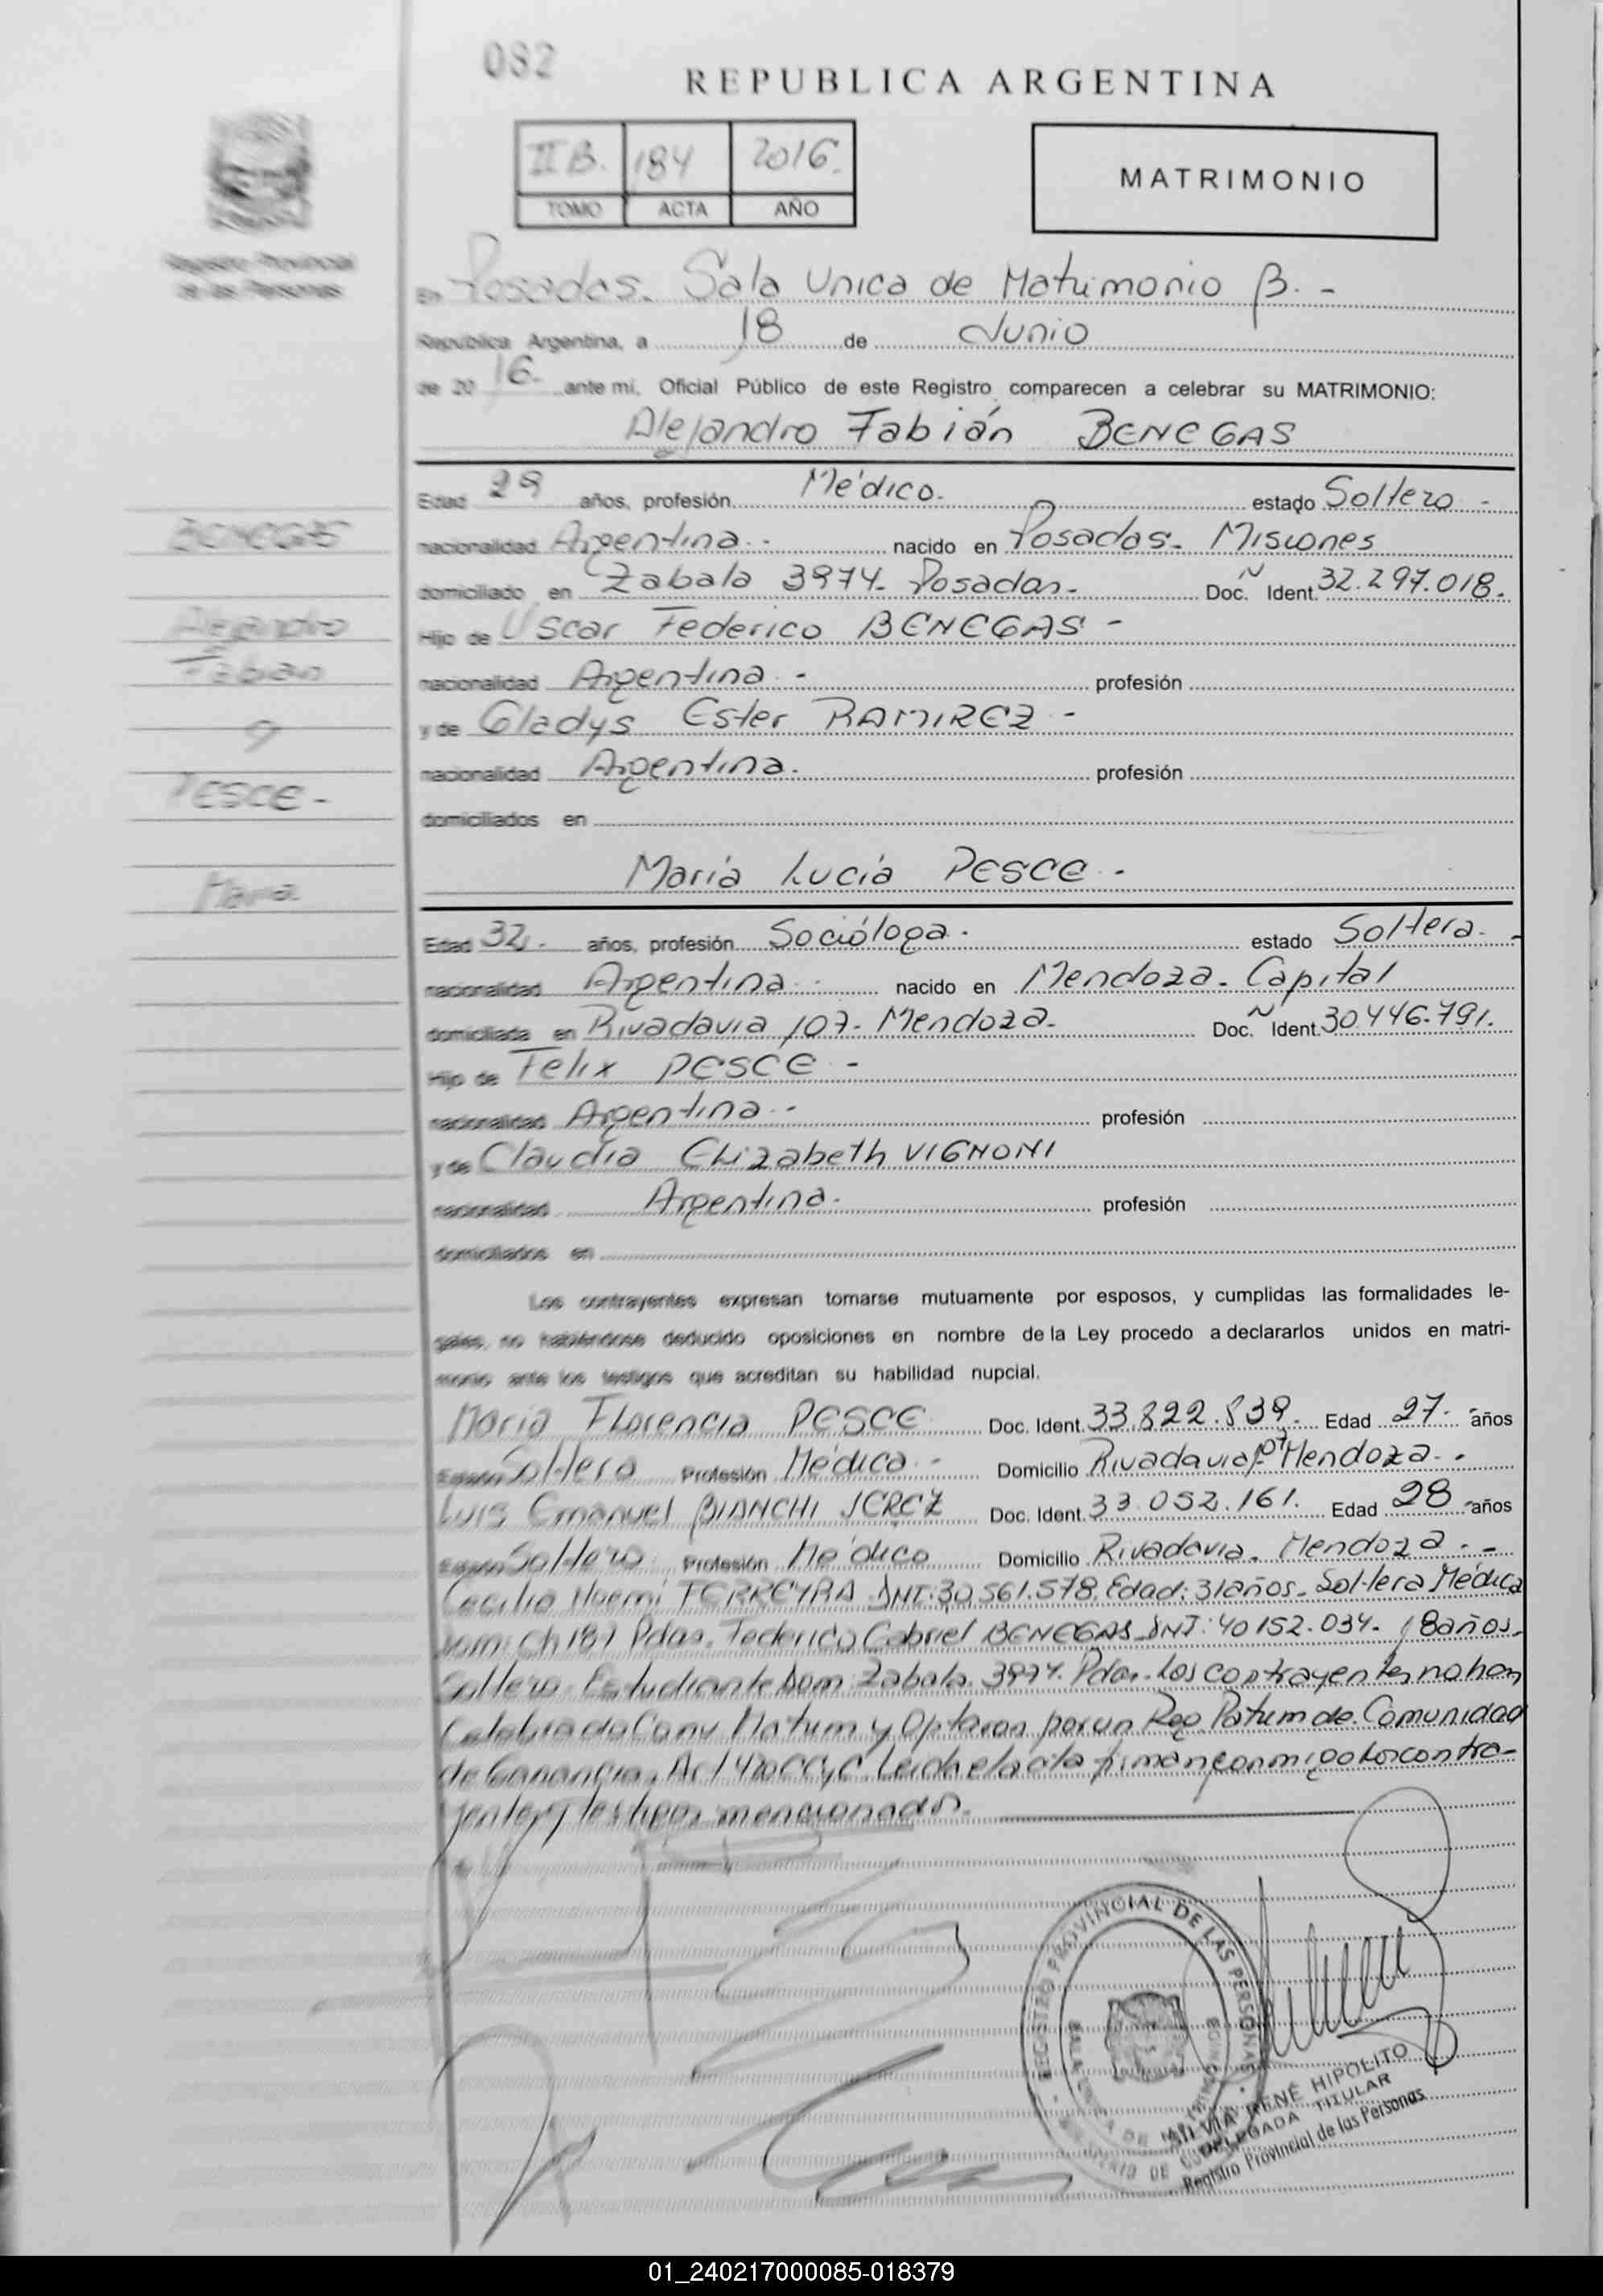 082
REPUBLICA ARGENTINA
II B. 184 2016.
TOMO ACTA AÑO
MATRIMONIO
Registro Provincial
de las Personas
En Posadas. Sala Unica de Matrimonio B. -
República Argentina, a 18 de Junio
de 20 16. ante mi, Oficial Público de este Registro comparecen a celebrar su MATRIMONIO:
Alejandro Fabián BENEGAS
Edad años, profesión Médico. estado Soltero -
BENEGAS
nacionalidad Argentina - nacido en Posadas - Misiones
domiciliado en Zabala 3974 - Posadas - Doc. Ident 32.297.018.
Alejandro
Fabian
Hijo de Oscar Federico BENEGAS -
nacionalidad Argentina - profesión
y de Gladys Ester RAMIREZ -
nacionalidad Argentina. profesión
PESCE -
domiciliados en
María Lucía PESCE -
Maria
Edad 32. años, profesión Socióloga. estado Soltera. -
nacionalidad Argentina nacido en Mendoza - Capital
domiciliada en Rivadavia 107 - Mendoza - Doc. Ident. 30.446.791.
Hijo de Felix PESCE -
nacionalidad Argentina - profesión
y de Claudia Elizabeth VIGNONI
nacionalidad Argentina. profesión
domiciliados en
Los contrayentes expresan tomarse mutuamente por esposos, y cumplidas las formalidades le-
gales, no habiéndose deducido oposiciones en nombre de la Ley procedo a declararlos unidos en matri-
monio ante los testigos que acreditan su habilidad nupcial.
Maria Florencia PESCE Doc. Ident. 33.822.839. Edad 27 - años
Soltera Profesión Médica - Domicilio Rivadavia 107 Mendoza -
Luis Emanuel BIANCHI JEREZ Doc. Ident. 33.052.161. Edad 28 - años
Soltero Profesión Médico Domicilio Rivadavia. Mendoza -
Cecilia Noemi FERREYRA DNI: 30.561.578. Edad: 31 años - Soltera Médica
Dom: Ch 181 Pdas. Federico Gabriel BENEGAS DNI: 40.152.034 - 18 años.
Soltero Estudiante Dom: Zabala 3974. Pdas. Los contrayentes no han
Celebrado Conv. Matrim y Optaron por un Reg. Patrim de Comunidad
de Ganancias. Art CCyC. Leida el acta firman conmigo los contra-
yentes y testigos mencionados.
REGISTRO PROVINCIAL DE LAS PERSONAS
SILVIA RENÉ HIPOLITO
DELEGADA TITULAR
Registro Provincial de las Personas
01_240217000085-018379